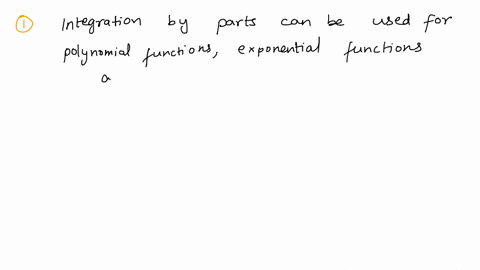 ① Integration by parts can be used for
polynomial functions, exponential functions
a